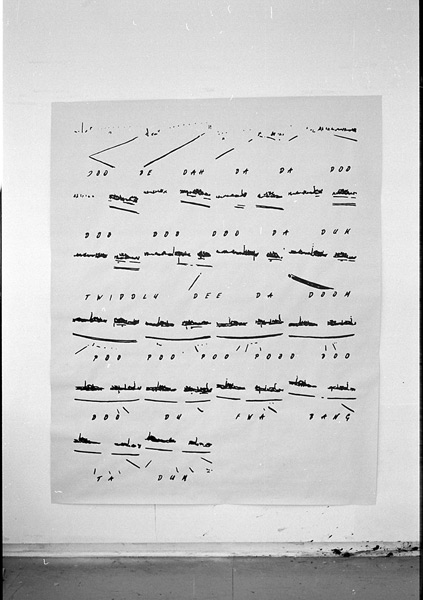 DOO BE DAH DA DA DOO
DOB DOB DBO DA DUK
TWIDDLU DEE DA DOOM
POO POO POO POBO BOO
BOO DU FWA BANG
TA DUM